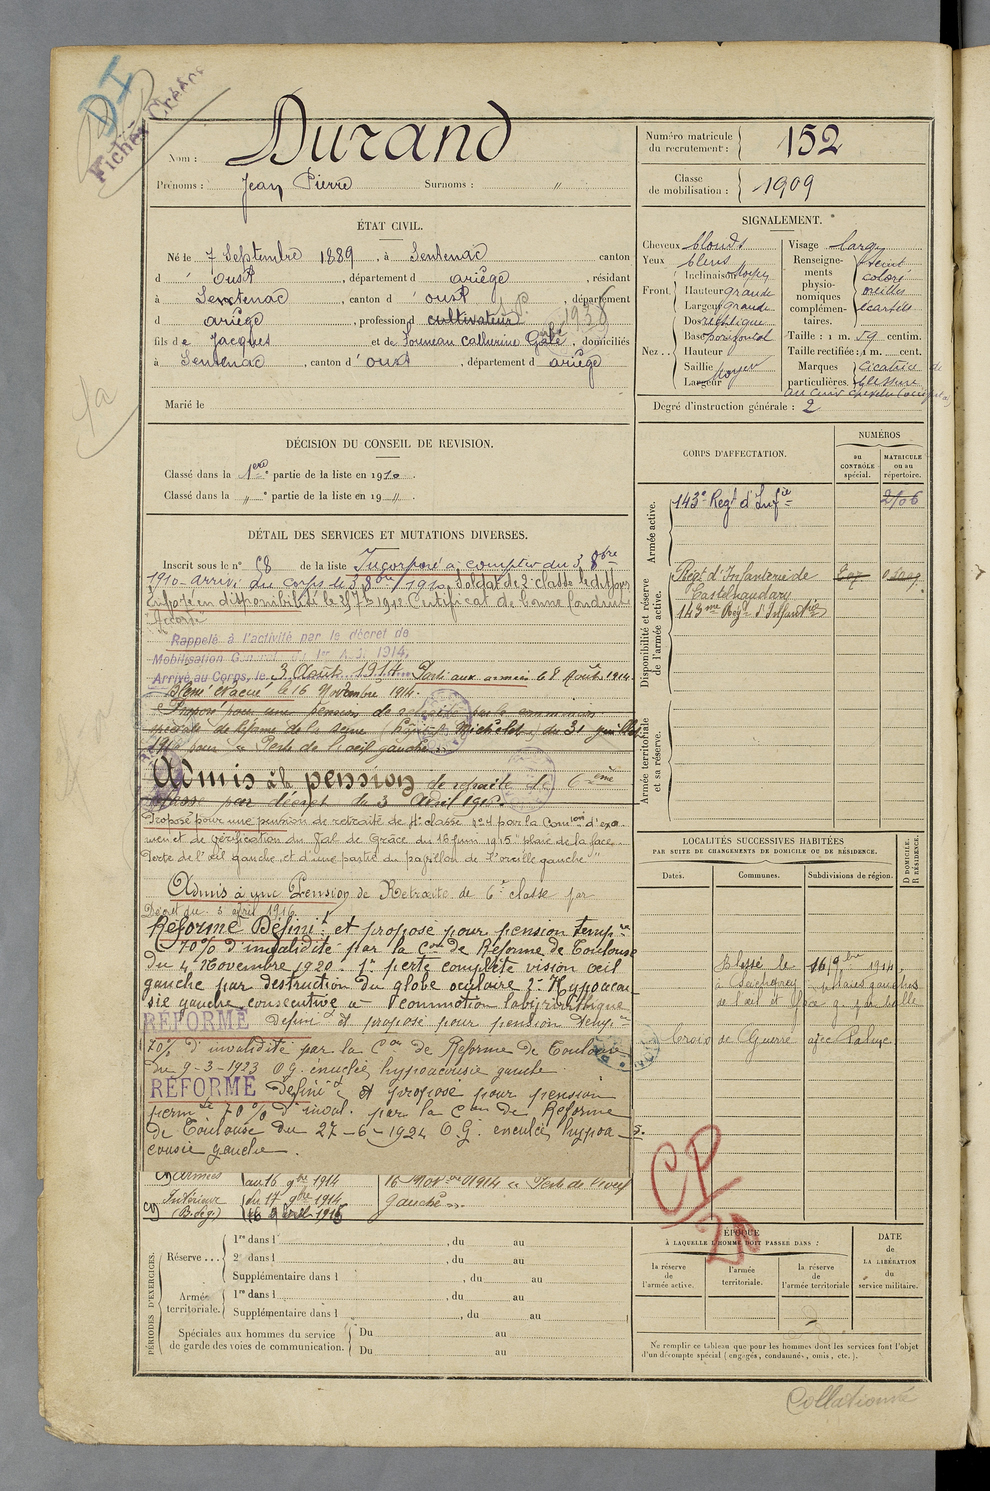 DI
Fichier Créanc
Durand
Nom :
Prénoms : Jean Pierre Surnoms : "
Numéro matricule du recrutement : 152
Classe de mobilisation : 1909
ÉTAT CIVIL.
Né le 7 Septembre 1889, à Sentenac canton
d'oust, département d ariège, résidant
à Sentenac, canton d'oust, département
d ariège, profession d cultivateur 1938
fils de Jacques et de Souneau Catherine, domiciliés
à Sentenac, canton d'oust, département d ariège
Marié le
DÉCISION DU CONSEIL DE REVISION.
Classé dans la 1ere partie de la liste en 1910.
Classé dans la " partie de la liste en 19 "
SIGNALEMENT.
Cheveux blonds
Yeux bleus
Front. Inclinaison Moyen
Hauteur grande
Largeur grande
Nez. Dos rectiligne
Base horizontal
Hauteur
Saillie moyen
Largeur
Visage large
Renseignements physionomiques complémentaires. teint coloré oreilles écartées
Taille : 1 m. 59 centim.
Taille rectifiée : 1 m. cent.
Marques particulières. Cicatrice de blessure
au cuir chevelu
Degré d'instruction générale : 2
DÉTAIL DES SERVICES ET MUTATIONS DIVERSES.
Inscrit sous le n° 58 de la liste Incorporé à compter du 3 8bre
1910 - arrivé au corps le 3 8bre 1910 Soldat de 2e classe le dit jour
Envoyé en disponibilité le 25 7b 1912 Certificat de bonne conduite
"Accordé"
Rappelé à l'activité par le décret de
Mobilisation Générale du 1er Août 1914,
Arrivé au Corps, le 3 Août 1914 Parti aux armées le 8 Août 1914.
Blessé évacué le 16 Novembre 1914.
Proposé pour une pension de retraite par la commission
spéciale de réforme de la Seine (hôpital Michelet) du 31 juillet
1915 pour "Perte de l'oeil gauche"
Admis à la pension de retraite de 6ème
classe par décret du 3 Avril 1916.
Proposé pour une pension de retraite de 4e classe n°4 par la Comion d'exa
men et de vérification du Val de Grâce du 16 Juin 1915 "Plaie de la face.
Perte de l'oeil gauche, et d'une partie du pavillon de l'oreille gauche"
Admis à une Pension de Retraite de 6e classe par
Décret du 3 avril 1916.
Réformé Définit. et proposé pour pension temp.re
70% d'invalidité par la Con de Réforme de Toulouse
du 4 Novembre 1920. 1° perte complète vision oeil
gauche par destruction du globe oculaire 2° Hypoacou
sie gauche consécutive à commotion labyrinthique
RÉFORMÉ Définit et proposé pour pension temp.re
70% d'invalidité par la Con de Réforme de Toulouse
du 9-3-1923 O.G. énucléé, hypoacousie gauche.
RÉFORMÉ Définit et proposé pour pension
perm.te 70% d'inval. par la Con de Réforme
de Toulouse du 27-6-1924 O.G. énucléé, hypoa
cousie gauche.
armées au 16 9bre 1914 16 Novbre 1914 "Perte de l'oeil
Intérieur du 17 9bre 1914 gauche".
(B. Gg.) 16 Avril 1915
CORPS D'AFFECTATION.
NUMÉROS
au CONTRÔLE spécial.
MATRICULE ou au répertoire.
Armée active.
143e Regt d'Infie 2706
Disponibilité et réserve de l'armée active.
Regt d'Infanterie de
Castelnaudary
143me Rég. d'Infanterie
Armée territoriale et sa réserve.
LOCALITÉS SUCCESSIVES HABITÉES
PAR SUITE DE CHANGEMENTS DE DOMICILE OU DE RÉSIDENCE.
Dates. Communes. Subdivisions de région.
D DOMICILE. R RÉSIDENCE.
Blessé le 16 9bre 1914
plaies gauches
de l'oeil et face g. par balle
Croix de Guerre avec Palme.
CP
20
PÉRIODES D'EXERCICES.
Réserve... 1re dans l , du au
2e dans l , du au
Supplémentaire dans l , du au
Armée territoriale. 1re dans l , du au
Supplémentaire dans l , du au
Spéciales aux hommes du service de garde des voies de communication. Du au
Du au
ÉPOQUE
À LAQUELLE L'HOMME DOIT PASSER DANS :
la réserve de l'armée active.
l'armée territoriale.
la réserve de l'armée territoriale
DATE DE LA LIBÉRATION du service militaire.
Ne remplir ce tableau que pour les hommes dont les services font l'objet
d'un décompte spécial (engagés, condamnés, omis, etc.).
Collationné